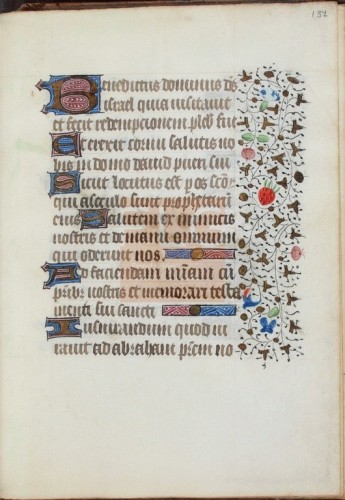 132
Benedictus dominus ds
israel quia uisitauit
et fecit redempcionem pleb sue
Et erexit cornu salutis no
bis in domo dauid pueri sui
Sicut locutus est p os scor
qui a seculo sunt prophetarum
eius Salutem ex inimicis
nostris et de manu omnium
qui oderunt nos
Ad faciendam miam cu
pribz nostris et memorari testa
menti sui sancti
Iusiurandum quod iu
rauit ad abraham prem no